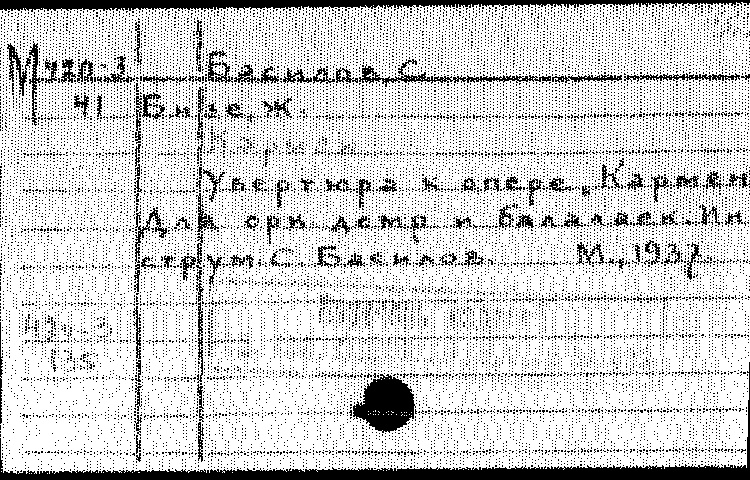 М 420-3 Басилов, С.
41 Бизе, Ж.
Увертюра к опере „Кармен
Для орк домр и балалаек. Ин
струм. С. Басилов. М., 1937.